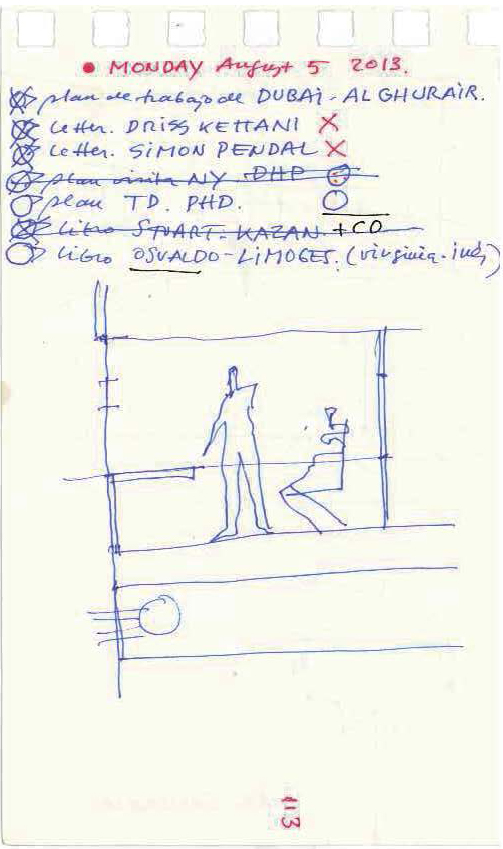 • MONDAY August 5 2013.
plan de trabajo de DUBAI - AL GHURAIR.
Letter. DRISS KETTANI X
Letter. SIMON PENDAL X
plan visita NY DHP
plan TD. PHD.
Libro STUART. KAZAN. +CO
Libro OSVALDO - LIMOGES. (virginia. ind)
113